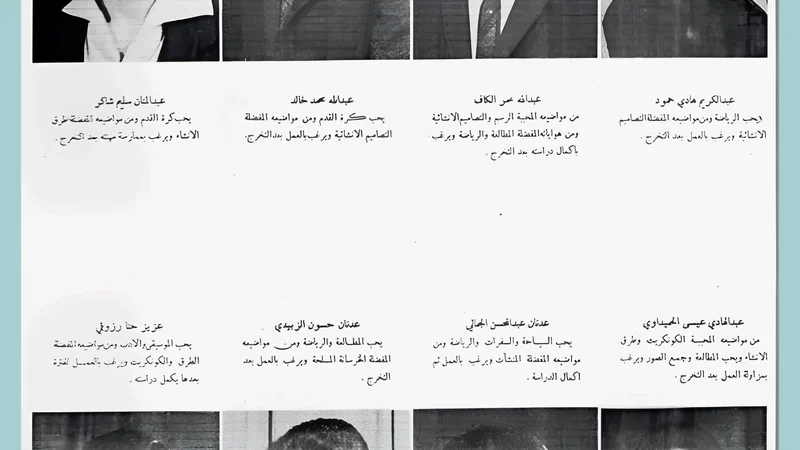 عبدالكريم هادي حمود
يحب الرياضة ومن مواضيعه المفضلة التصاميم
الانشائية ويرغب بالعمل بعد التخرج .
عبدالله عمر الكاف
من مواضيعه المحببة الرسم والتصاميم الانشائية
ومن هواياته المفضلة المطالعة والرياضة ويرغب
باكمال دراسته بعد التخرج .
عبدالله محمد خالد
يحب كرة القدم ومن مواضيعه المفضلة
التصاميم الانشائية ويرغب بالعمل بعد التخرج.
عبدالمنان سليم شاكر
يحب كرة القدم ومن مواضيعه المفضلة طرق
الانشاء ويرغب بممارسة مهنته بعد التخرج .
عبدالهادي عيسى الحميداوي
من مواضيعه المحببة الكونكريت وطرق
الانشاء ويحب المطالعة وجمع الصور ويرغب
بمزاولة العمل بعد التخرج .
عدنان عبدالمحسن الجمالي
يحب السباحة والسفرات والرياضة ومن
مواضيعه المفضلة المنشآت ويرغب بالعمل ثم
اكمال الدراسة .
عدنان حسون الزبيدي
يحب المطالعة والرياضة ومن مواضيعه
المفضلة الخرسانة المسلحة ويرغب بالعمل بعد
التخرج .
عزيز حنا رزوقي
يحب الموسيقى والادب ومن مواضيعه المفضلة
الطرق والكونكريت ويرغب بالعمل لفترة
بعدها يكمل دراسته .